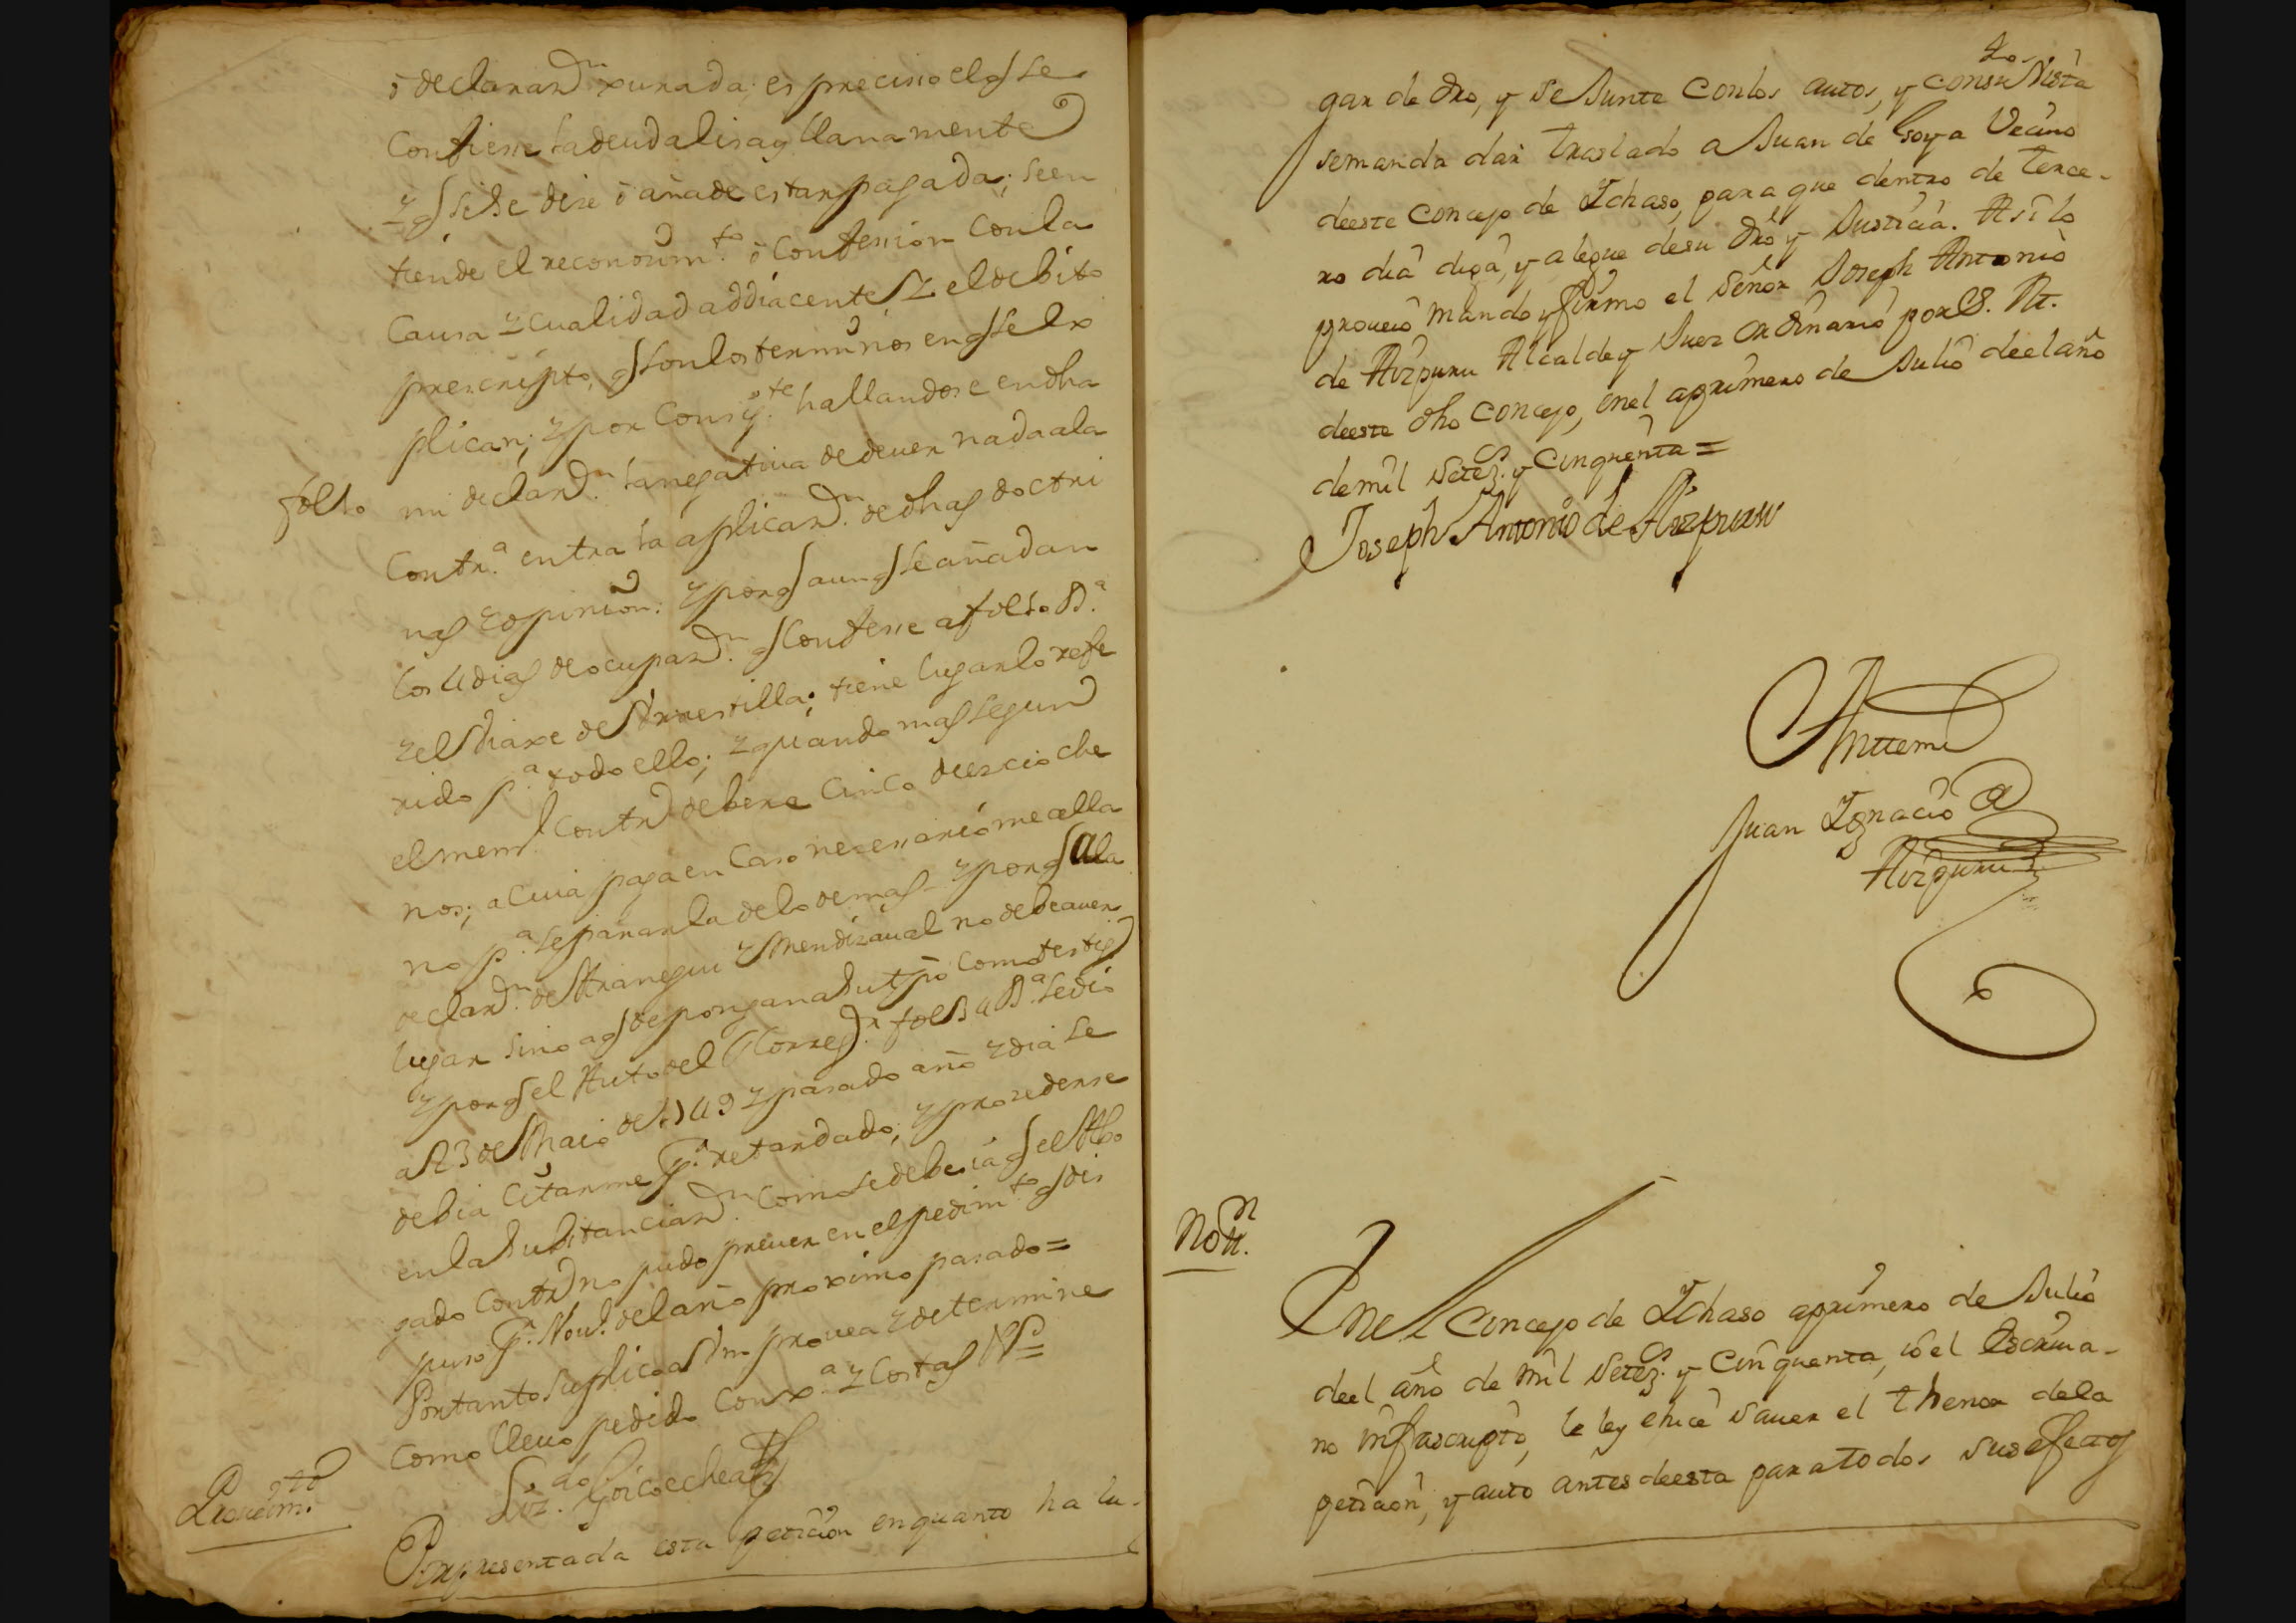 ō declarazn jurada; es preciso el q se
Confiese la deuda lisa y llanamente
y q si se dize ō añade estar pagada; se en
tiende el reconozimto ō Confesion Con la
Causa y cualidad addiacente, y el debito
prescripto, q son los terminos en q se ex
plican; y por Consigte hallandose en dha
fol 10 mi declarazn la negativa de dever nada a la
Contra entra la aplicazn de dhas doctri
nas y opinion: y porq aunq se añadan
los 4 dias de ocupazn q Confiese a fol 10 Ba
y el diaxe de Arrestilla; tiene lugar lo refe
rido pa todo ello; y quando mas segun
el mem Contro debere Cinco diezioche
nos; a Cuia paga en Caso nezesario me alla
no pa separarla de lo demas y porq a la
declarn de Aranegui y Mendizaual no debe auer
lugar sino a q depongan a su tpo Como testigs
y porq el Auto del Corregr fol 34 Ba se dio
a 23 de Maio de 1749 y pasado año y dia se
debia Citarme pr retardado; y prozederse
en la Substanciazn Como se deberia q el Abo
gado Contro no pudo prever en el pedimto q dis
puso pr Nove del año proximo pasado=
Portanto suplico a Vm provea y determine
Como lleuo pedido Con xa y Costas Va=
Lizdo Goicoechea
Proueimto Presentada esta petiçion en quanto ha lu-
20
gar de dro, y se Junte Con los autos, y Con su Vista
se manda dar traslado a Juan de Goya Vecino
de este Concejo de Ichaso, para que dentro de terce-
ro dia diga, y alegue de su dro y Justicia. Asi lo
proueió mando y firmo el Señor Joseph Antonio
de Aizpuru Alcalde y Juez ordinario por S. M.
de este dho Concejo, en el a primero de Julio de el año
de mil Setez. y Cinquenta=
Joseph Antonio de Aizpuru
Anttemi
Juan Ignacio de
Aizpuru
Non
En el Concejo de Ichaso a primero de Julio
de el año de mil Setez. y Cinquenta, io el Escriua-
no infrascripto, le ley e hice sauer el thenor de la
petiçion, y auto antes de esta para todos sus efectos